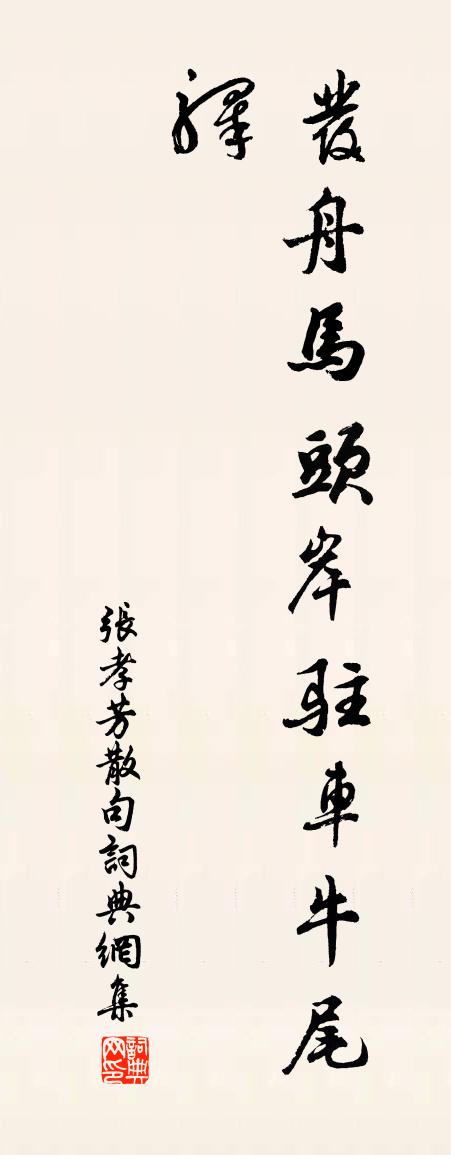 發舟馬頭岸駐車牛尾
驛
張孝芳散句詞典網集
詞典
网印